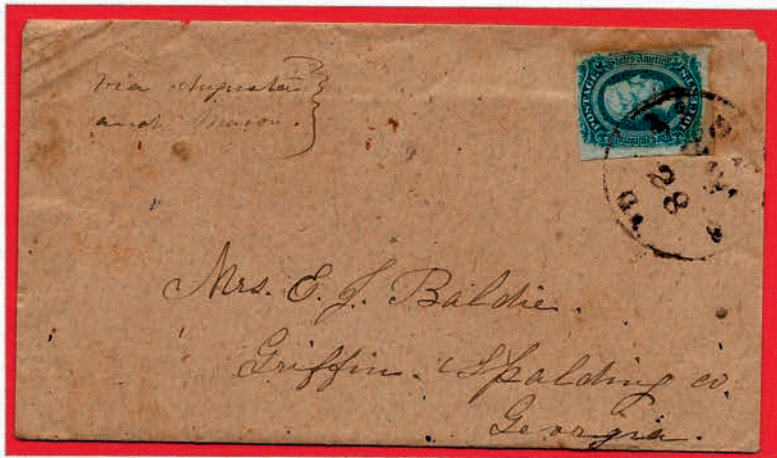 via Augusta
and Macon.
States America
POSTAGE
TEN CENTS
28
Mrs. E. J. Baldie.
Griffin. Spalding co.
Georgia.